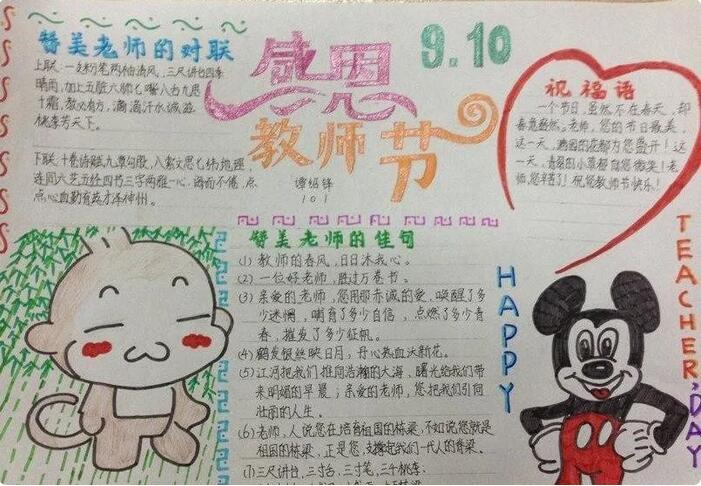 赞美老师的对联
上联：一支粉笔两袖清风，三尺讲台四季
晴雨，加上五脏六肺七嘴八舌九思
十霜，教必有方，滴滴汗水诚滋
桃李芳天下。
下联：十卷诗赋九章勾股，八索文思七纬地理，
连同六艺五经四节三字两雅一心，诲而不倦，点
点心血勤育英才泽神州。
感恩
教师节
9.10
谭绍锋
101
祝福语
一个节日，虽然不在春天，却
春意盎然。老师，您的节日最美，
这一天，满园的花都为您盛开！这
一天，青翠的小草都向您微笑！老
师，您辛苦了！祝您教师节快乐！
赞美老师的佳句
(1) 教师的春风，日日沐我心。
(2) 一位好老师，胜过万卷书。
(3) 亲爱的老师，您用那赤诚的爱，唤醒了多
少迷惘，哺育了多少自信，点燃了多少青
春，摧发了多少征帆。
(4) 鹤发银丝映日月，丹心热血沃新花。
(5) 江河把我们推向浩瀚的大海，曙光给我们带
来明媚的早晨；亲爱的老师，您把我们引向
壮丽的人生。
(6) 老师，人说您在培育祖国的栋梁，不如说您就是
祖国的栋梁，正是您，支撑起我们一代人的脊梁。
(7) 三尺讲台，三寸舌，三寸笔，三千桃李；
HAPPY
TEACHER'DAY